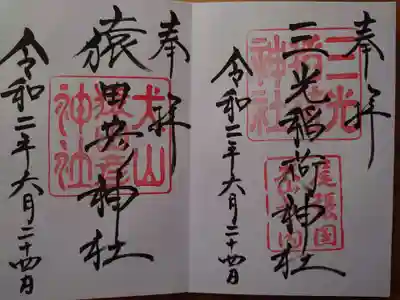 奉拝
三光稲荷神社
令和二年六月二十四日
三光
稲荷
神社
尾張国
奉拝
猿田彦神社
令和二年六月二十四日
犬山
猿田彦
神社